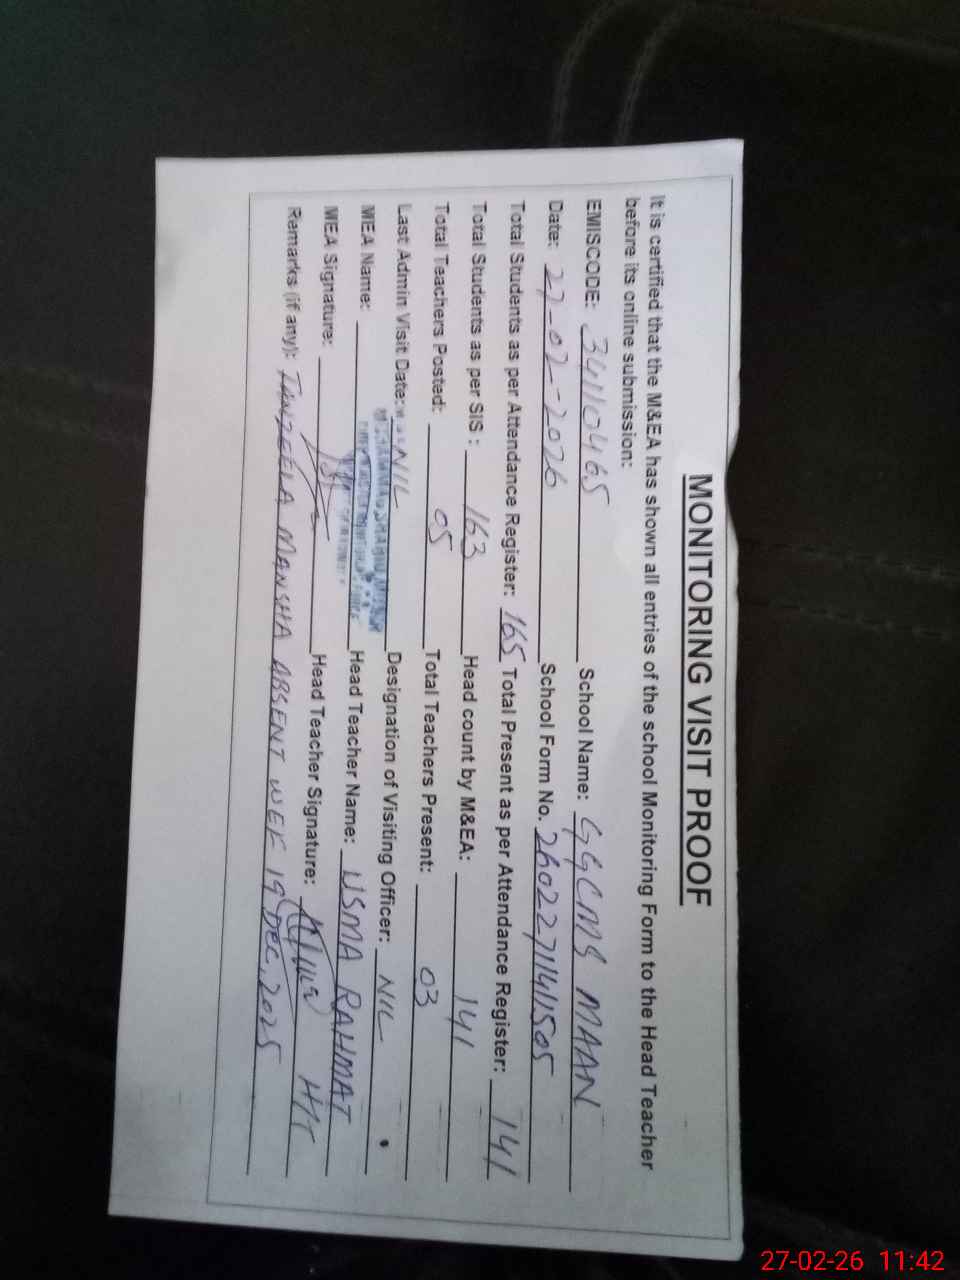 MONITORING VISIT PROOF
It is certified that the M&EA has shown all entries of the school Monitoring Form to the Head Teacher
before its online submission:
EMISCODE: 34110465 School Name: GGCMS MAAN
Date: 27-02-2026 School Form No. 26022711411505
Total Students as per Attendance Register: 165 Total Present as per Attendance Register: 141
Total Students as per SIS : 163 Head count by M&EA: 141
Total Teachers Posted: 05 Total Teachers Present: 03
Last Admin Visit Date: NIL Designation of Visiting Officer: NIL
MEA Name: Head Teacher Name: USMA RAHMAT
MEA Signature: Head Teacher Signature: H/T
Remarks (if any): TANZEELA MANSHA ABSENT WEF 19 DEC, 2025
27-02-26 11:42